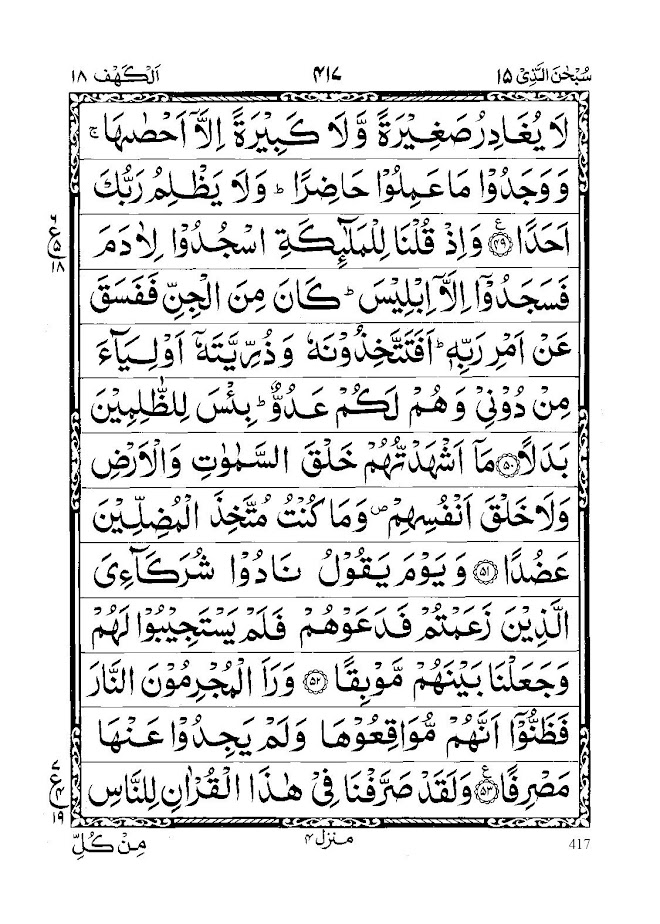 سُبۡحٰنَ الَّذِیۡۤ ۱۵ ۴۱۷ اَلۡکَهۡف ۱۸
لَا یُغَادِرُ صَغِیۡرَةً وَّلَا کَبِیۡرَةً اِلَّاۤ اَحۡصٰىهَا ۚ
وَ وَجَدُوۡا مَا عَمِلُوۡا حَاضِرًا ؕ وَلَا یَظۡلِمُ رَبُّكَ
اَحَدًا ﴿۴۹﴾ وَاِذۡ قُلۡنَا لِلۡمَلٰٓئِکَةِ اسۡجُدُوۡا لِاٰدَمَ
فَسَجَدُوۡۤا اِلَّاۤ اِبۡلِیۡسَ ؕ کَانَ مِنَ الۡجِنِّ فَفَسَقَ
عَنۡ اَمۡرِ رَبِّهٖ ؕ اَفَتَتَّخِذُوۡنَهٗ وَ ذُرِّیَّتَهٗۤ اَوۡلِیَآءَ
مِنۡ دُوۡنِیۡ وَ هُمۡ لَکُمۡ عَدُوٌّ ؕ بِئۡسَ لِلظّٰلِمِیۡنَ
بَدَلًا ﴿۵۰﴾ مَاۤ اَشۡهَدۡتُّهُمۡ خَلۡقَ السَّمٰوٰتِ وَالۡاَرۡضِ
وَلَا خَلۡقَ اَنۡفُسِهِمۡ ۪ وَمَا کُنۡتُ مُتَّخِذَ الۡمُضِلِّیۡنَ
عَضُدًا ﴿۵۱﴾ وَ یَوۡمَ یَقُوۡلُ نَادُوۡا شُرَکَآءِیَ
الَّذِیۡنَ زَعَمۡتُمۡ فَدَعَوۡهُمۡ فَلَمۡ یَسۡتَجِیۡبُوۡا لَهُمۡ
وَ جَعَلۡنَا بَیۡنَهُمۡ مَّوۡبِقًا ﴿۵۲﴾ وَرَاَ الۡمُجۡرِمُوۡنَ النَّارَ
فَظَنُّوۡۤا اَنَّهُمۡ مُّوَاقِعُوۡهَا وَلَمۡ یَجِدُوۡا عَنۡهَا
مَصۡرِفًا ﴿۵۳﴾ وَلَقَدۡ صَرَّفۡنَا فِیۡ هٰذَا الۡقُرۡاٰنِ لِلنَّاسِ
مِنۡ کُلِّ منزل ۴ 417
۶ ع ۵ ۱۸
۷ ع ۴ ۱۹